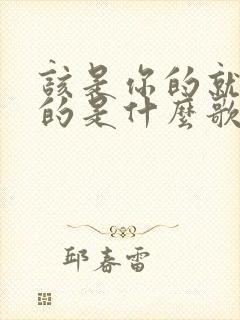 該是你的就
的是什麼歌
邱春雷